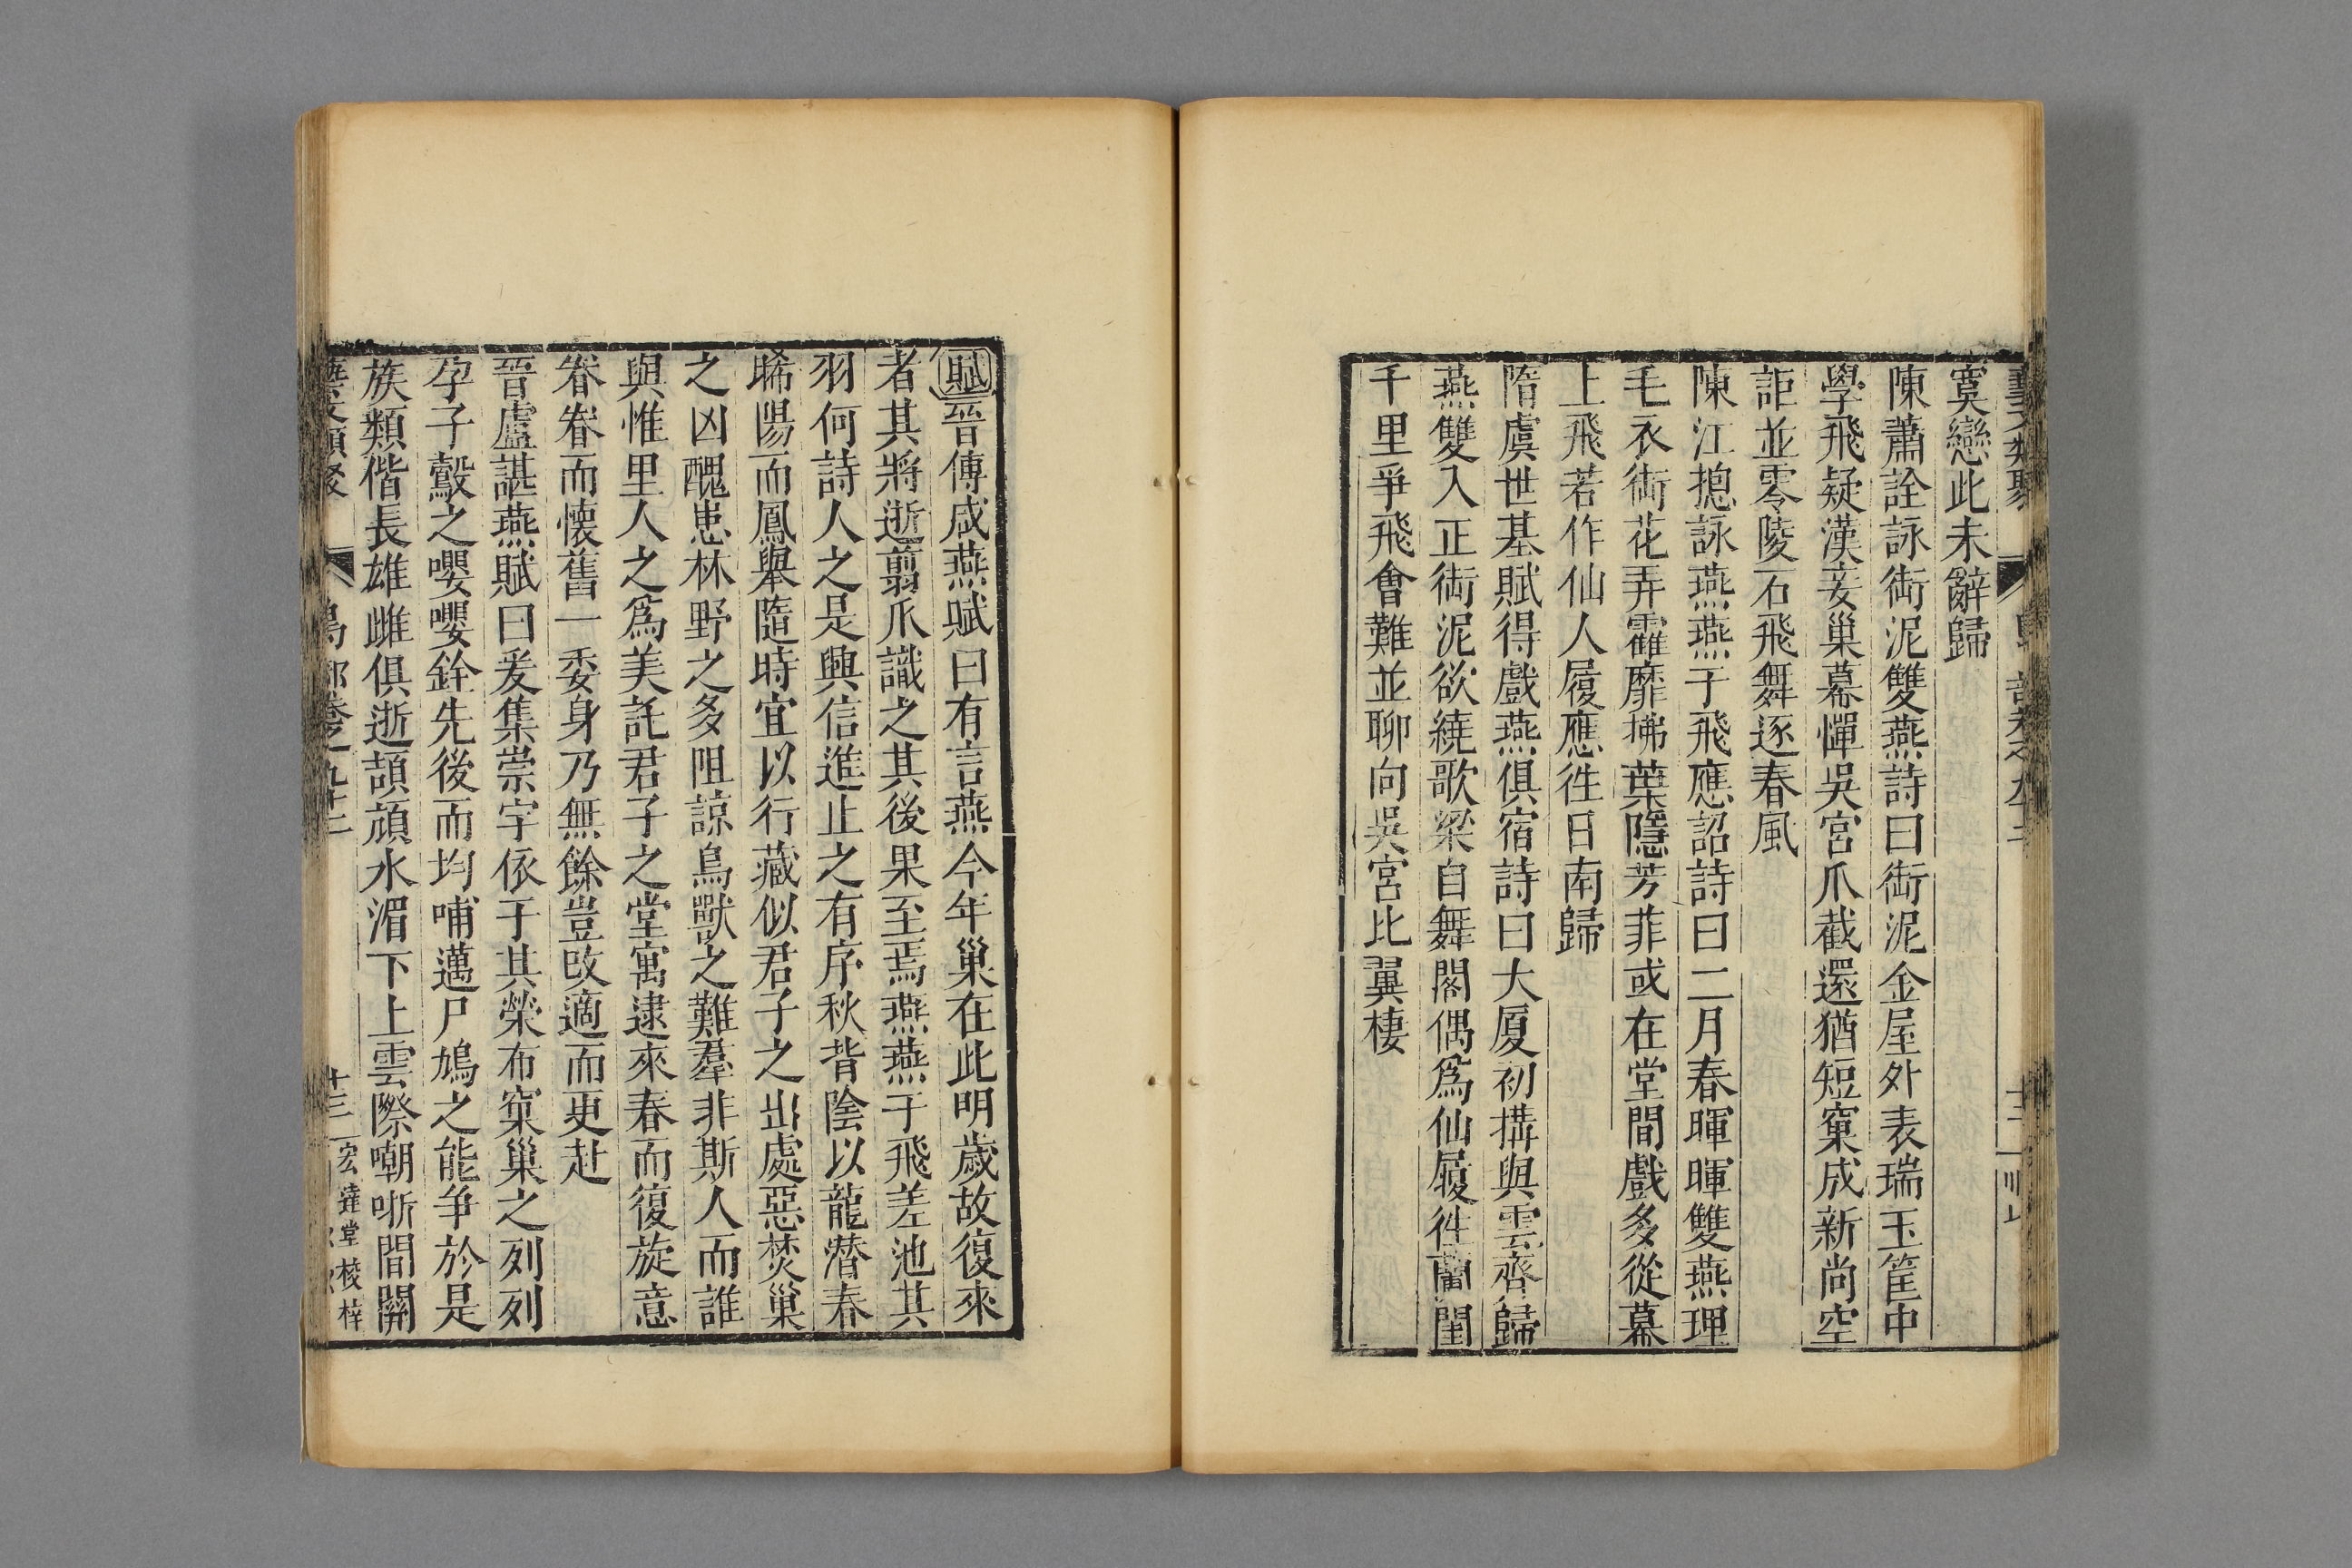 藝文類聚 鳥部卷之九十二 十二
寞戀此未辭歸
陳蕭詮詠銜泥雙燕詩曰銜泥金屋外表瑞玉筐中
學飛疑漢妾巢幕憚吳宮爪截還猶短窠成新尚空
詎並零陵石飛舞逐春風
陳江揔詠燕燕于飛應詔詩曰二月春暉暉雙燕理
毛衣銜花弄霍靡拂葉隱芳菲或在堂間戲多從幕
上飛若作仙人履應徃日南歸
隋虞世基賦得戲燕俱宿詩曰大厦初搆與雲齊歸
燕雙入正銜泥欲繞歌梁自舞閣偶爲仙履徃蘭閨
千里爭飛會難並聊向吳宮比翼棲
賦晉傅咸燕賦曰有言燕今年巢在此明歲故復來
者其將逝剪爪識之其後果至焉燕燕于飛差池其
羽何詩人之是興信進止之有序秋背陰以龍潜春
晞陽而鳳舉隨時宜以行藏似君子之出處惡焚巢
之凶醜患林野之多阻諒鳥獸之難羣非斯人而誰
與惟里人之爲美託君子之堂寓逮來春而復旋意
眷眷而懷舊一委身乃無餘豈改適而更赴
晉盧諶燕賦曰爰集崇宇依于其榮布窠巢之列列
孕子鷇之嚶嚶銓先後而均哺邁尸鳩之能爭於是
族類偕長雄雌俱逝頡頏水湄下上雲際嘲哳間關
藝文類聚 鳥部卷之九十二 十三 宏達堂校梓